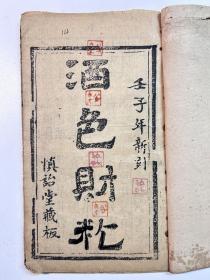 壬子年新刻
酒色財氣
慎詒堂藏板